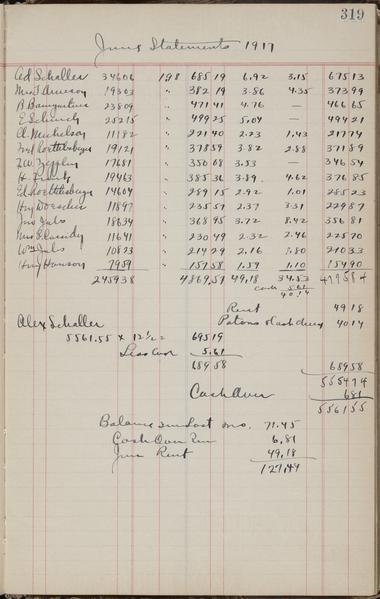 319
June Statements 1917
Ad Schaller 34606 198 685 19 6.92 3.15 675 13
19303 " 382 19 3.86 4.35 373 99
B Baumgartner 23809 " 471 41 4.76 — 466 65
E Schenck 25215 " 499 25 5.04 — 494 21
A. Mickelson 11182 " 221 40 2.23 1.43 217 74
19121 " 378 59 3.82 2.88 371 89
17681 " 350 08 3.53 — 346 54
H. 19463 " 385 36 3.89 4.62 376 85
14604 " 289 15 2.92 1.01 285 23
11897 " 235 57 2.37 3.31 229 87
18634 " 368 95 3.72 8.42 356 81
Cassidy 11641 " 230 49 2.32 2.46 225 70
Wm 10823 " 214 29 2.16 1.80 210 33
Hy Hanson 7959 157 58 1.59 1.10 154 90
245938 4869.51 49,18 34.53 4795 84
Cash 5.61
40.14
Rent 49 18
Patrons & Cash 40 14
Alex Schaller
5561.55 x 12 1/2 695 19
Less Cash 5.61
689 58 689 58
5554 74
Cash Over 6 81
5561 55
Balance Last mo. 71.45
Cash Over 6.81
June Rent 49,18
127,49